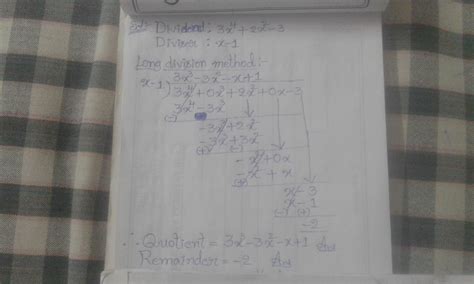 Sol: Dividend: 3x⁴+2x²-3
Divisor: x-1
Long division method:-
3x³-3x²-x+1
x-1)3x⁴+0x³+2x²+0x-3
3x⁴-3x³
(-)
-3x³+2x²
-3x³+3x²
(+) (-)
-x²+0x
-x²+x
(+)
x-3
x-1
(-) (+)
-2
∴ Quotient = 3x³-3x²-x+1 Ans
Remainder = -2 Ans